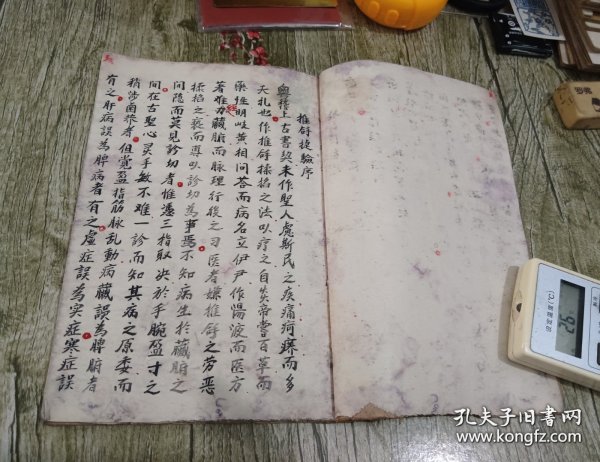 推拿捷驗序
上古書契未作聖人慮斯民之疾痛疴癢而多
夭札也作推拿揉掐之法以療之自炎帝嘗百草而
藥性明岐黃相問答而病名立伊尹作湯液而医方
著难經藏腑而脉理行後之习医者嫌推拿之劳惡
揉掐之褻而專以診切為事焉不知病生於藏腑之
间隐而莫見診切者惟憑三指取决於手腕盈寸之
间在古聖心灵手敏不难一診而知其病之原委而
稍涉鹵莽者但覚盈指筋脉乱動病藏誤為腑者
有之肝病誤為脾病者有之虛症誤為实症寒症誤
92
孔夫子旧書网
www.kongfz.com